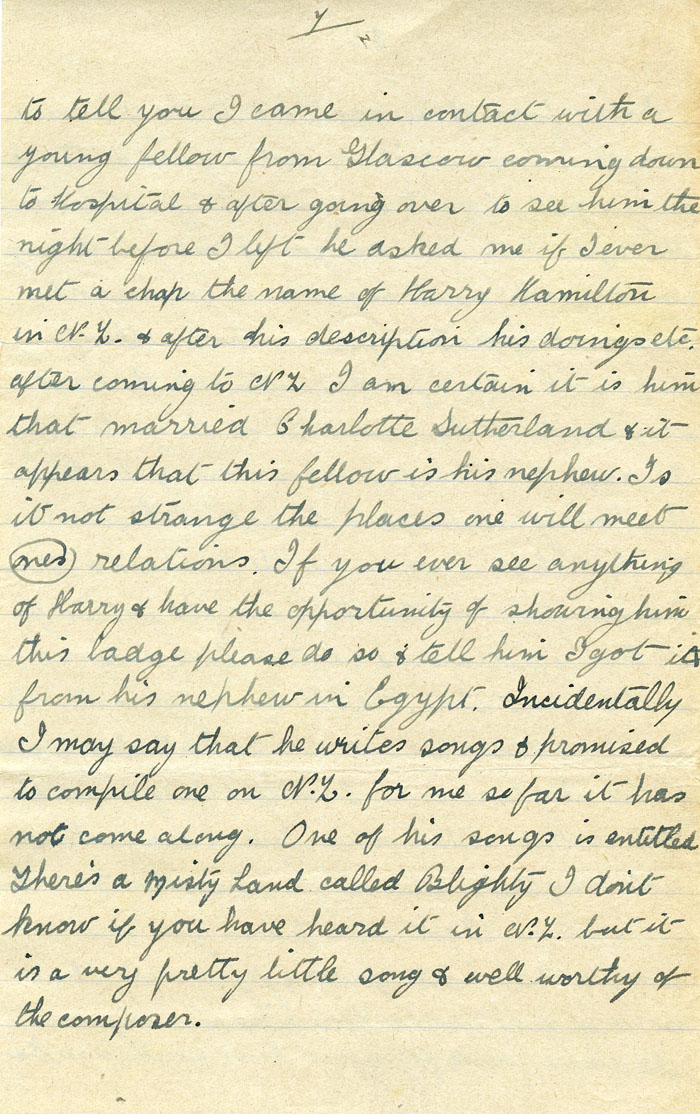 to tell you I came in contact with a
young fellow from Glascow coming down
to Hospital & after going over to see him the
night before I left he asked me if I ever
met a chap the name of Harry Hamilton
in N.Z. & after his description his doings etc.
after coming to N Z I am certain it is him
that married Charlotte Sutherland & it
appears that this fellow is his nephew. Is
it not strange the places one will meet
relations. If you ever see anything
of Harry & have the opportunity of showing him
this badge please do so & tell him I got it
from his nephew in Egypt. Incidentally
I may say that he writes songs & promised
to compile one on N.Z. for me so far it has
not come along. One of his songs is entitled
There's a Misty Land called Blighty I don't
know if you have heard it in N.Z. but it
is a very pretty little song & well worthy of
the composer.